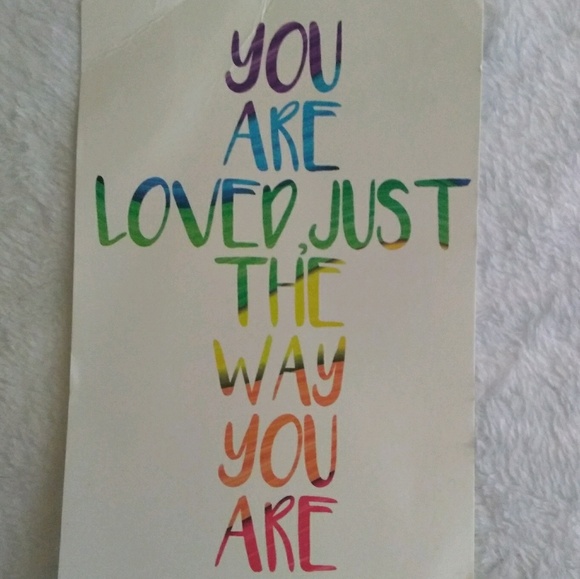 YOU
ARE
LOVED, JUST
THE
WAY
YOU
ARE